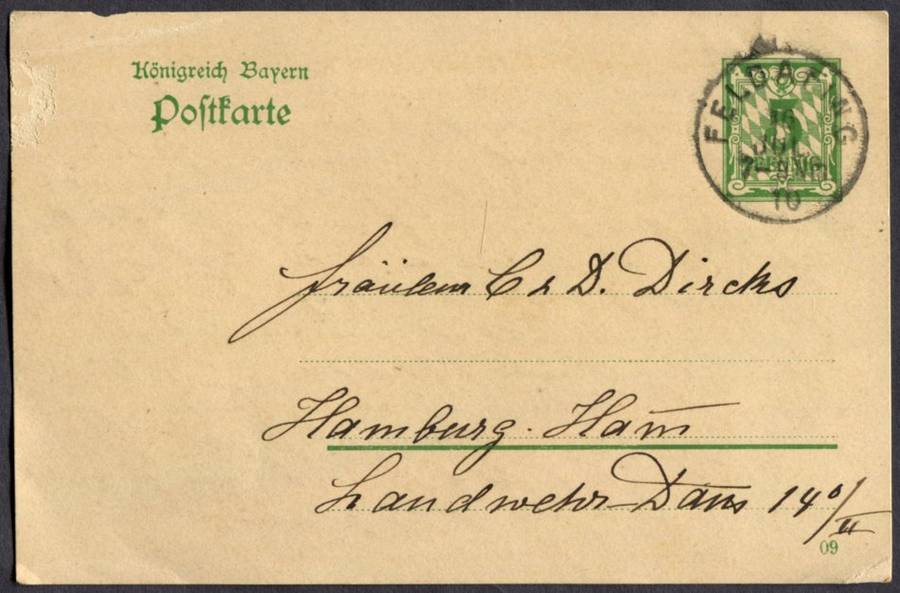 Königreich Bayern
Postkarte
FELDAFING
5
PFENNIG
10
Fräulein C D. Dircks
Hamburg-Ham̅
Landwehr
09